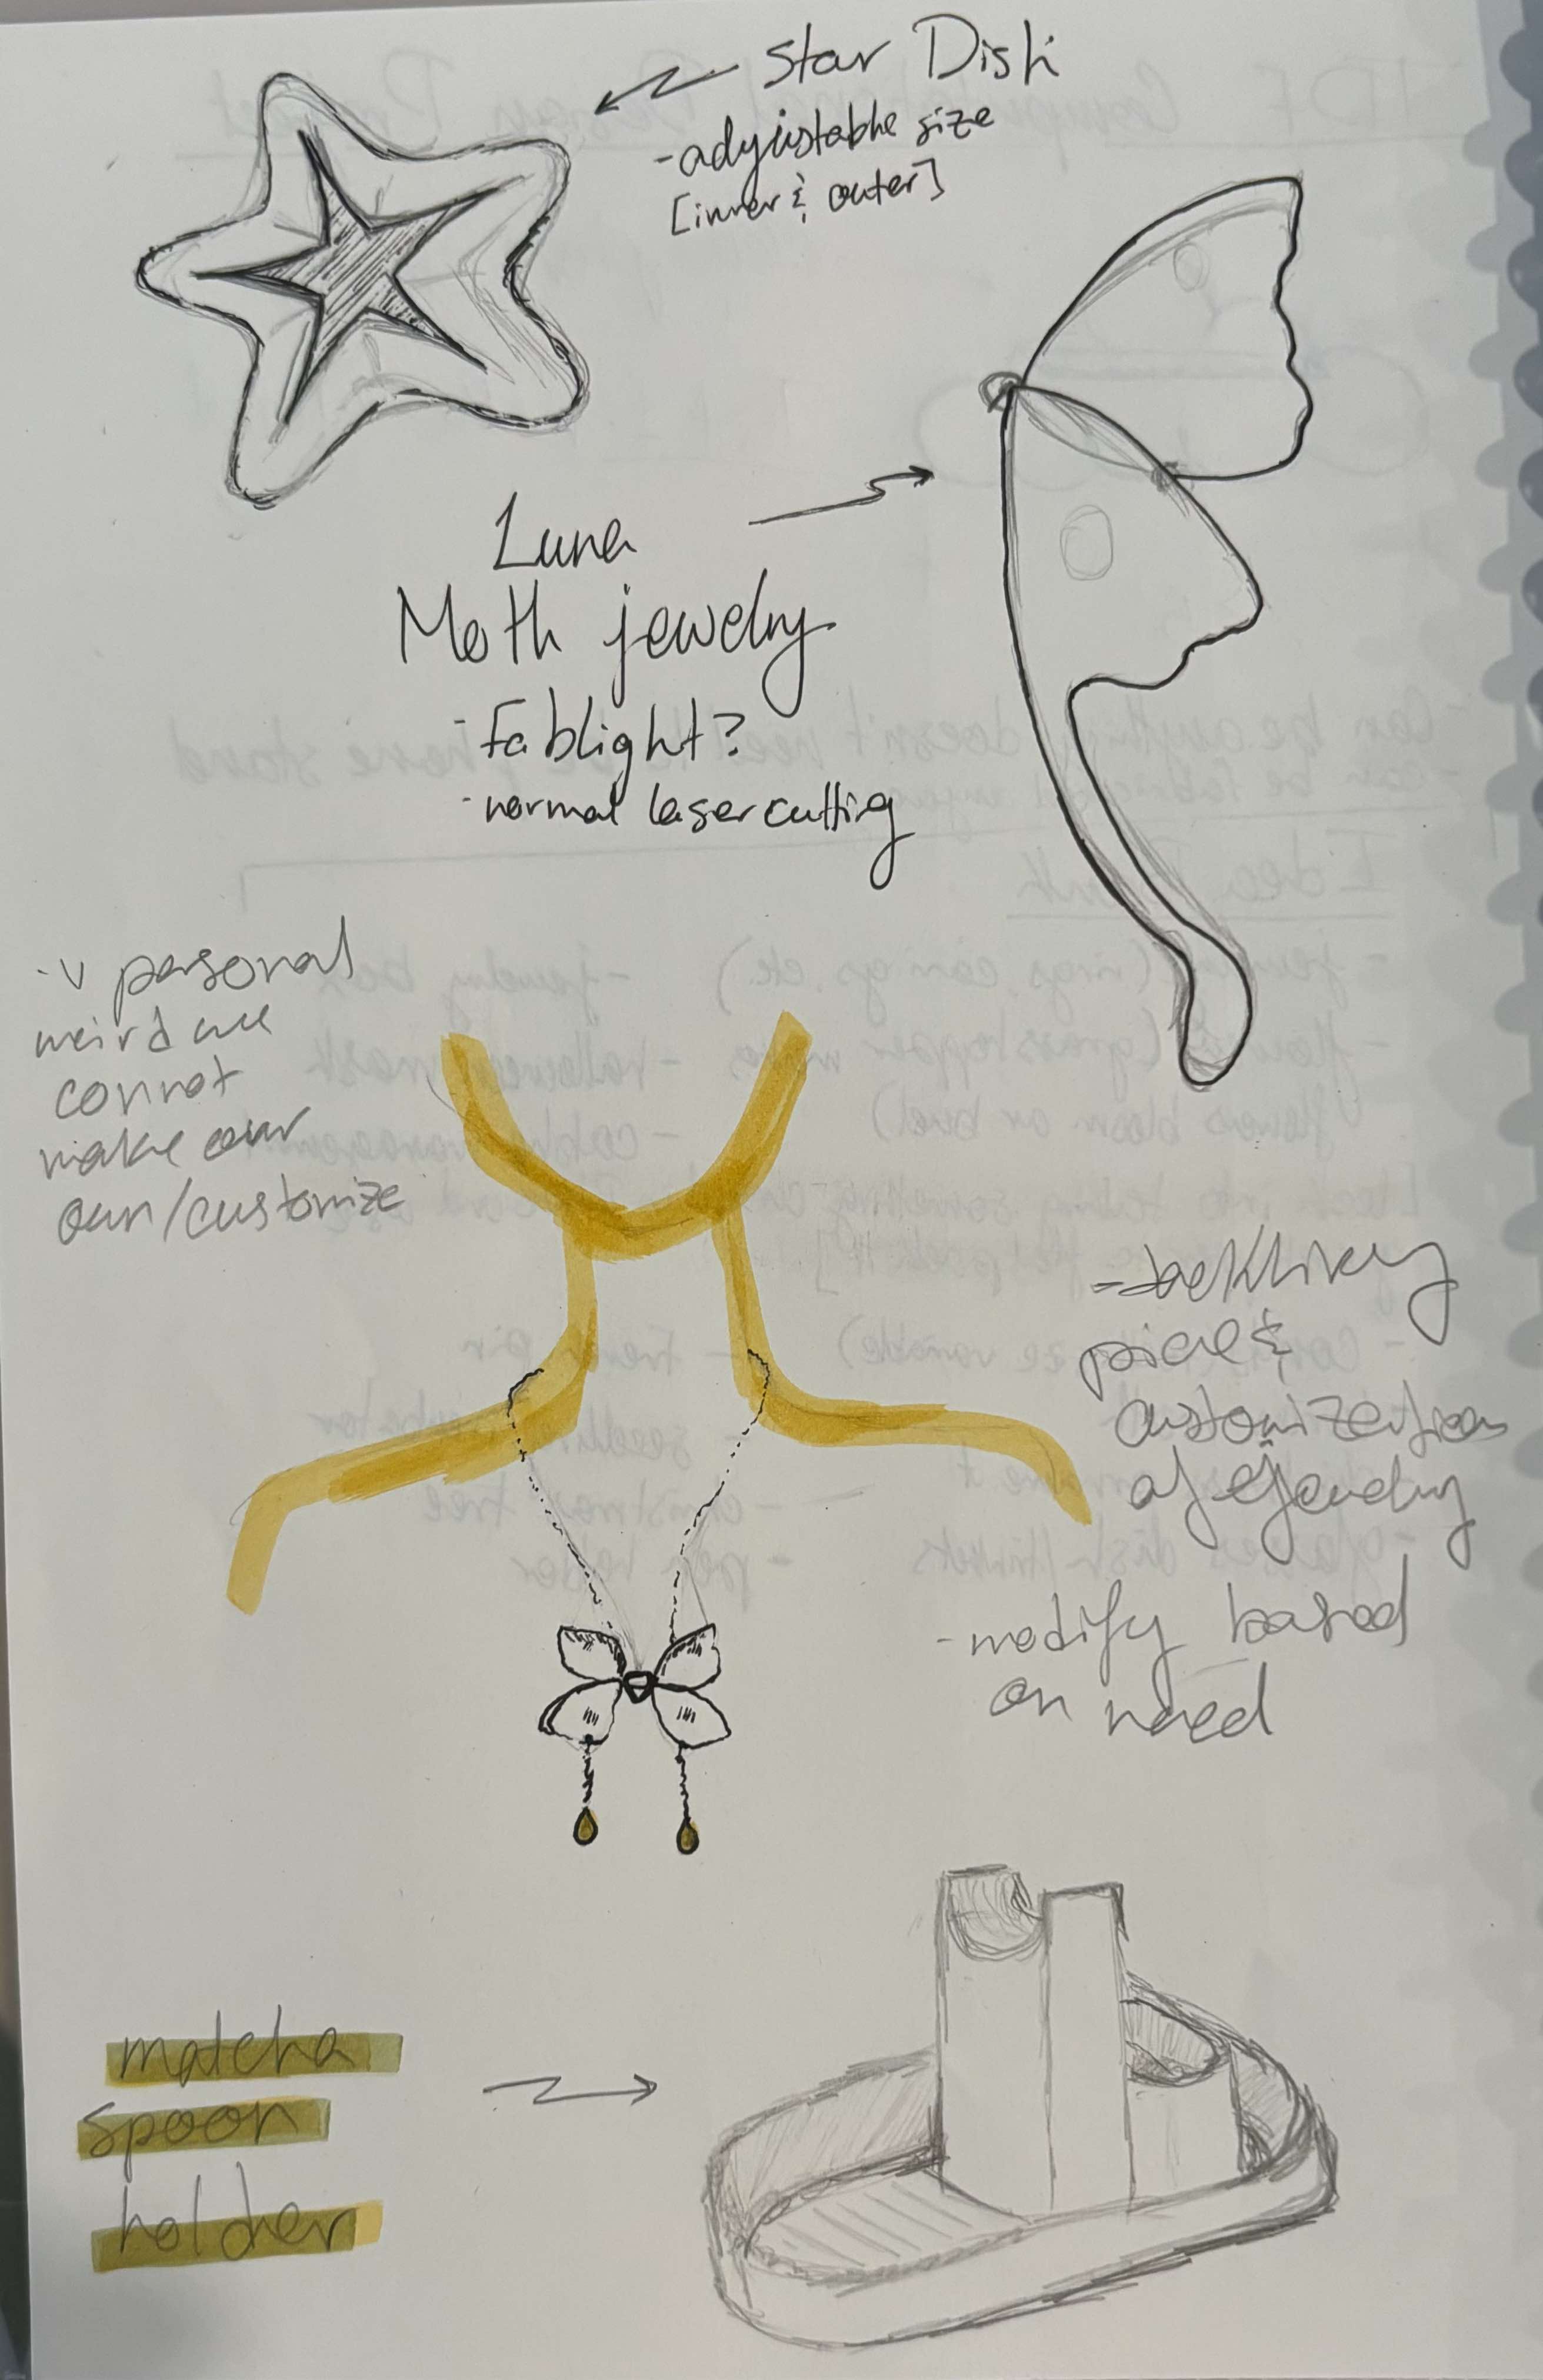 Star Dish
- adjustable size
[inner & outer]
Luna
Moth jewelry
- Fablight?
- normal lasercutting
v personal
weird we
connot
make our
own/customize
price &
customization
of jewelry
- modify based
on need
matcha
spoon
holder